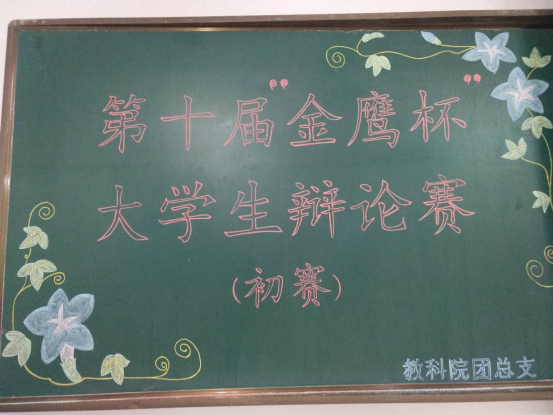 第十届“金鹰杯”
大学生辩论赛
(初赛)
教科院团总支